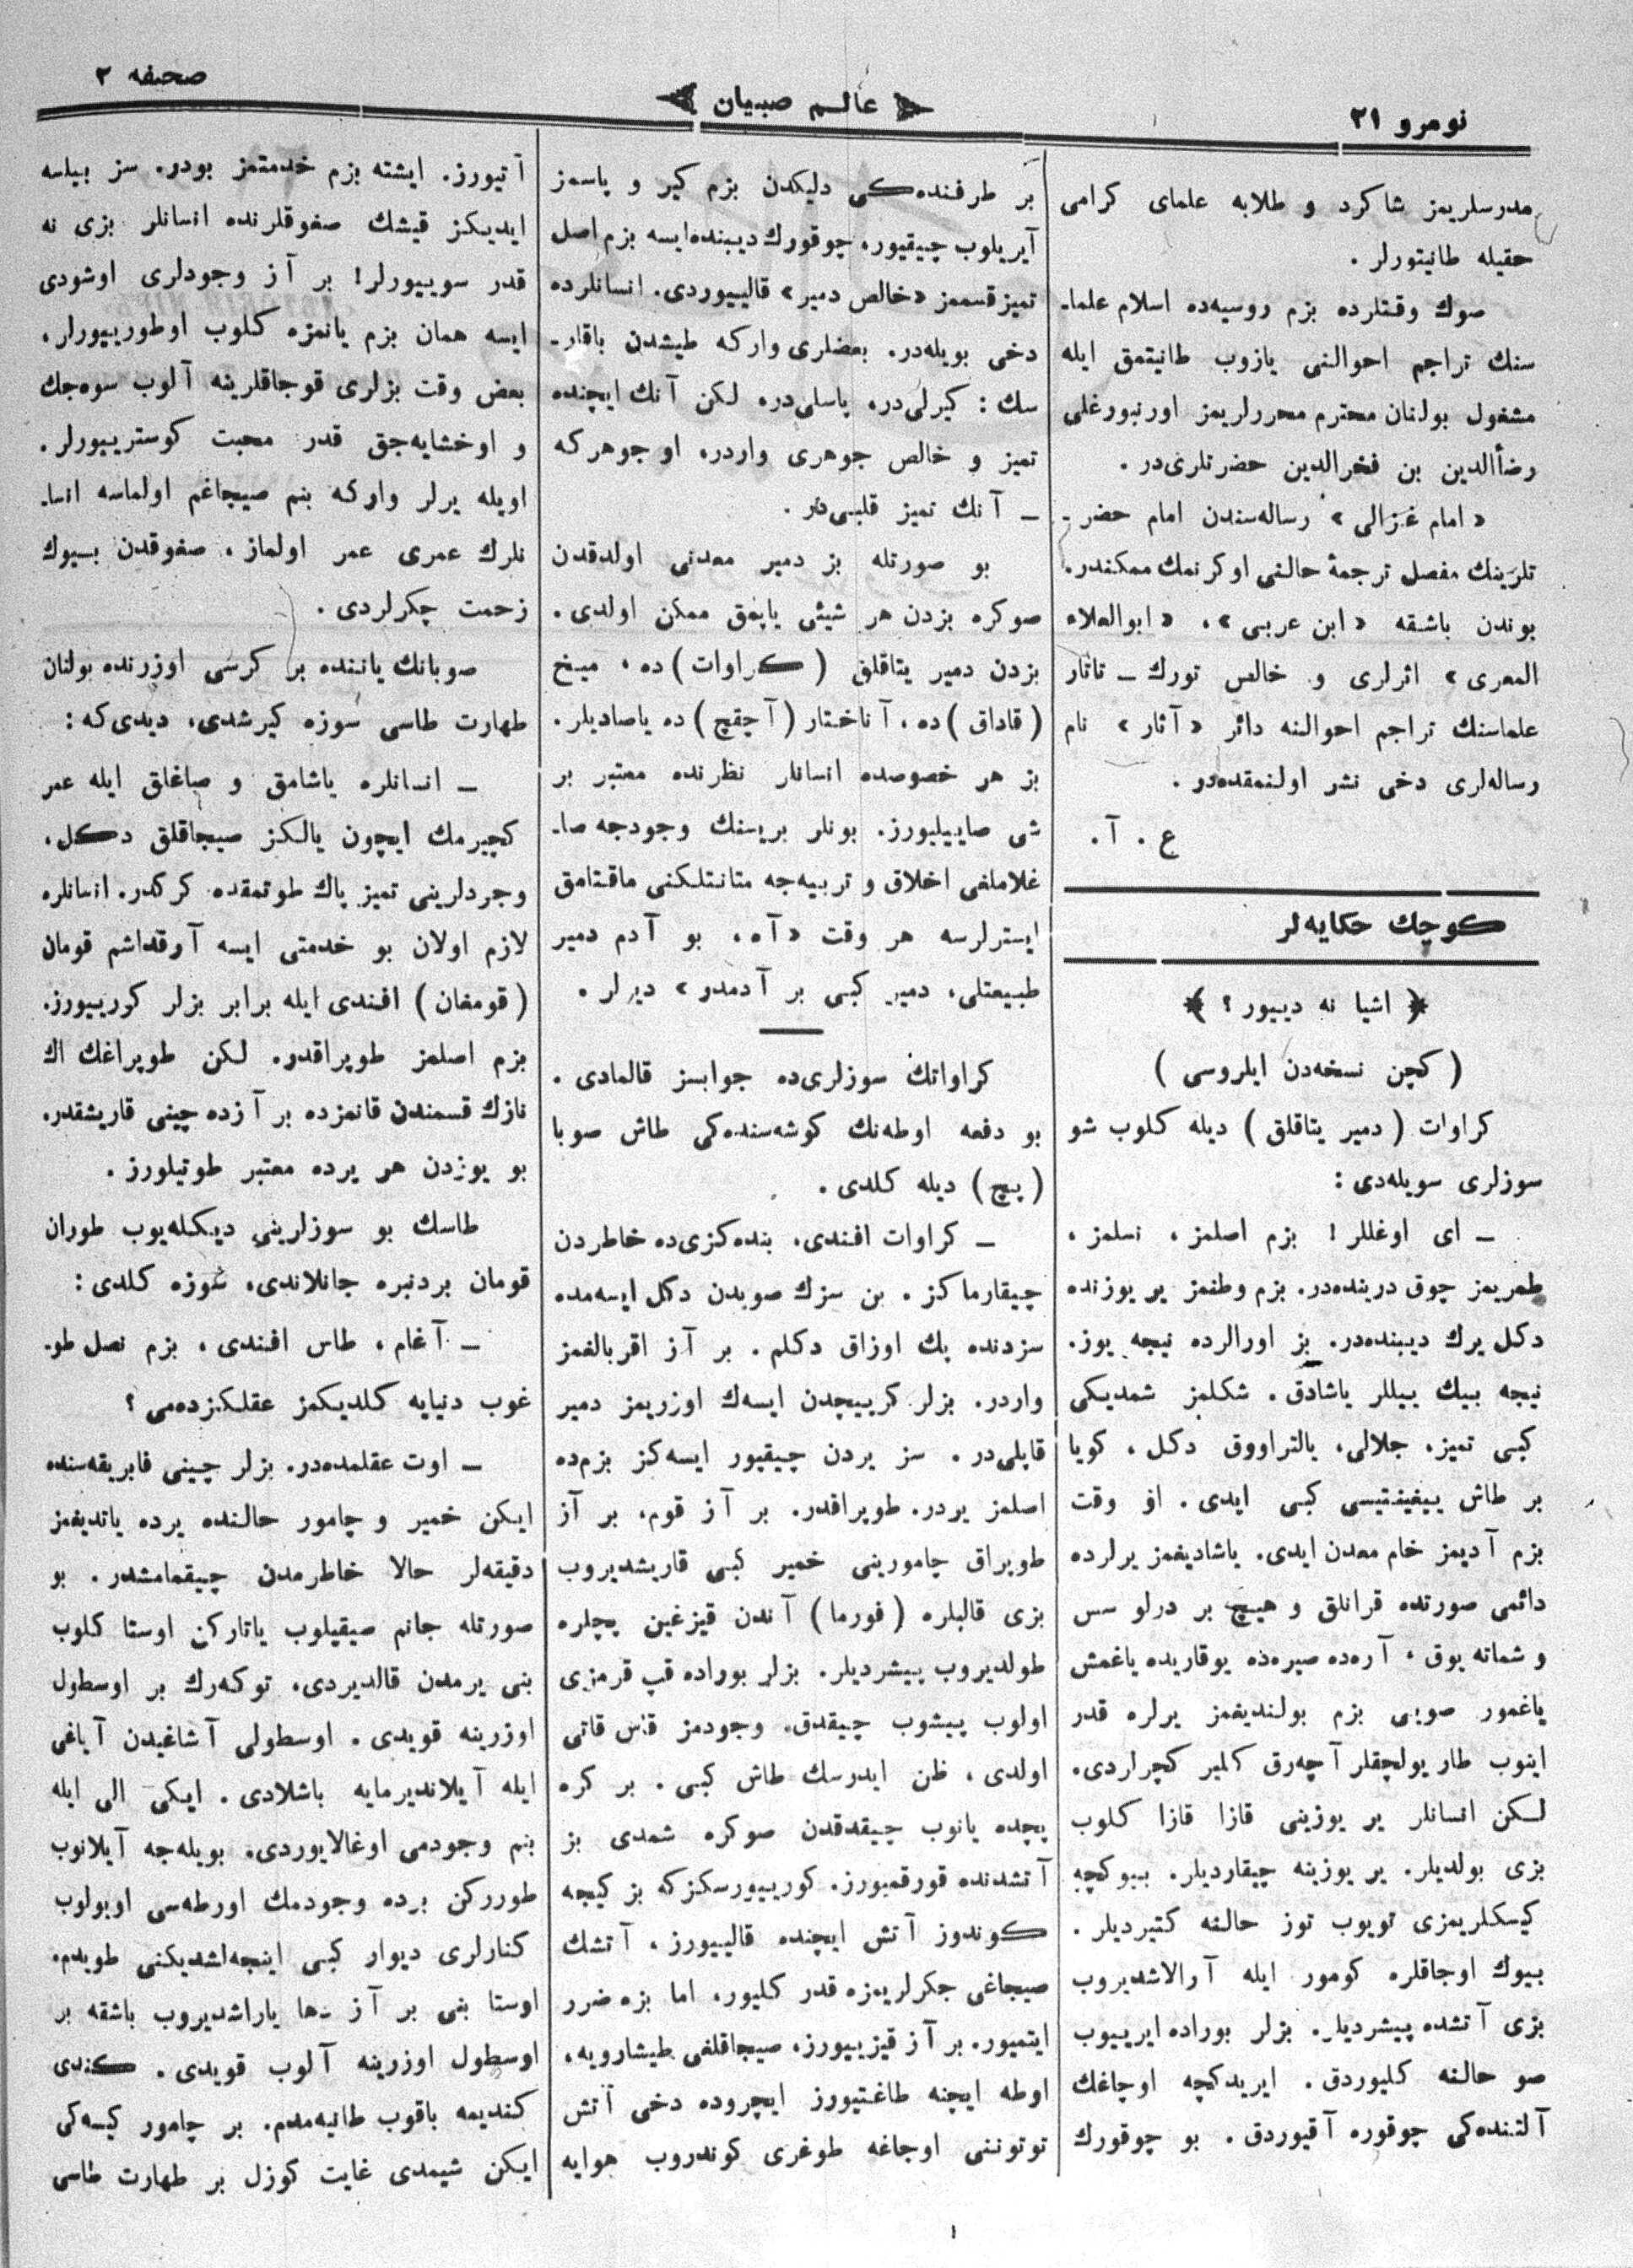 نومرو ۲۱
عالم صبيان
صحيفه ۲
مدرسلريمز شاكرد و طلابه علمای كرامی
حقيله طانيتورلر .
صوك وقتلرده بزم روسيه‌ده اسلام علما-
سنك تراجم احوالنی يازوب طانيتمق ايله
مشغول بولنان محترم محررلريمز اورنبورغلی
رضأالدين بن فخرالدين حضرتلری‌در .
«امام غزالی» رساله‌سندن امام حضر-
تلرينك مفصل ترجمهٔ حالنی اوكرنمك ممكندر.
بوندن باشقه «ابن عربی»، «ابوالعلاء
المعری» اثرلری و خالص تورك ـ تاتار
علماسنك تراجم احوالنه دائر «آثار» نام
رساله‌لری دخی نشر اولنمقده‌در .
ع . آ .
كوچك حكايه‌لر
﴿ اشيا نه دييور ؟ ﴾
( كچن نسخه‌دن ايلروسی )
كراوات ( دمير يتاقلق ) ديله كلوب شو
سوزلری سويله‌دی :
ـ ای اوغللر ! بزم اصلمز ، نسلمز ،
طمريمز چوق درينده‌در. بزم وطنمز ير يوزنده
دكل يرك ديبنده‌در. بز اورالرده نيچه يوز.
نيچه بيك ييللر ياشادق . شكلمز شمديكی
كبی تميز، جلالی، يالتراووق دكل ، كويا
بر طاش ييغينتيسی كبی ايدی . او وقت
بزم آديمز خام معدن ايدی. ياشاديغمز يرلرده
دائمی صورتده قرانلق و هيچ بر درلو سس
و شماته يوق ، آره‌ده صيره‌ده يوقاريده ياغمش
ياغمور صويی بزم بولنديغمز يرلره قدر
اينوب طار يولچقلر آچه‌رق كلير كچرلردی.
لكن انسانلر ير يوزينی قازا قازا كلوب
بزی بولديلر. ير يوزينه چيقارديلر. بيوكچه
كيسكلريمزی تويوب توز حالنه كتيرديلر .
بيوك اوجاقلره كومور ايله آرالاشديروب
بزی آتشده پيشرديلر. بزلر بوراده ايرييوب
صو حالنه كليوردق . ايريدكچه اوجاغك
آلتنده‌كی چوقوره آقيوردق . بو چوقورك
بر طرفنده‌كی دليكدن بزم كير و پاسمز
آيريلوب چيقيور، چوقورك ديبنده‌ايسه بزم اصل
تميز قسممز «خالص دمير» قالييوردی. انسانلرده
دخی بويله‌در. بعضلری واركه طيشدن باقار-
سك : كيرلی‌در، پاسلی‌در، لكن آنك ايچنده
تميز و خالص جوهری واردر، او جوهر كه
ـ آنك تميز قلبی‌در .
بو صورتله بز دمير معدنی اولدقدن
صوكره بزدن هر شيئی ياپمق ممكن اولدی .
بزدن دمير يتاقلق ( كراوات ) ده ، ميخ
( قاداق ) ده ، آناختار ( آچقچ ) ده ياصاديلر .
بز هر خصوصده انسانلر نظرنده معتبر بر
شی صاييليورز. بونلر بريسنك وجودجه صا-
غلاملغی اخلاق و تربيه‌جه متانتلكنی ماقتامق
ايسترلرسه هر وقت «آه ، بو آدم دمير
طبيعتلی، دمير كبی بر آدمدر» ديرلر .
كراواتك سوزلری‌ده جوابسز قالمادی .
بو دفعه اوطه‌نك كوشه‌سنده‌كی طاش صوبا
( پيچ ) ديله كلدی .
ـ كراوات افندی، بنده‌كزی‌ده خاطردن
چيقارماكز . بن سزك صويدن دكل ايسه‌مده
سزدنده پك اوزاق دكلم . بر آز اقربالغمز
واردر. بزلر كرپيچدن ايسه‌ك اوزريمز دمير
قاپلی‌در . سز يردن چيقيور ايسه‌كز بزم‌ده
اصلمز يردر. طوپراقدر. بر آز قوم، بر آز
طوپراق چامورينی خمير كبی قاريشديروب
بزی قالبلره ( فورما ) آندن قيزغين پچلره
طولديروب پيشرديلر. بزلر بوراده قپ قرمزی
اولوب پيشوب چيقدق. وجودمز قاس قاتی
اولدی ، ظن ايدرسك طاش كبی . بر كره
پچده يانوب چيقدقدن صوكره شمدی بز
آتشدنده قورقميورز. كورييورسكزكه بز كيجه
كوندوز آتش ايچنده قالييورز ، آتشك
صيجاغی جكرلريمزه قدر كليور، اما بزه ضرر
ايتميور. بر آز قيزييورز، صيجاقلغی طيشارويه،
اوطه ايچنه طاغتيورز ايچروده دخی آتش
توتوننی اوجاغه طوغری كوندروب هوايه
آتيورز. ايشته بزم خدمتمز بودر. سز بيلسه
ايديكز قيشك صغوقلرنده انسانلر بزی نه
قدر سوييورلر! بر آز وجودلری اوشودی
ايسه همان بزم يانمزه كلوب اوطورييورلر،
بعض وقت بزلری قوجاقلرينه آلوب سوه‌جك
و اوخشايه‌جق قدر محبت كوسترييورلر.
اويله يرلر واركه بنم صيجاغم اولماسه انسا-
نلرك عمری عمر اولماز ، صغوقدن بييوك
زحمت چكرلردی .
صوبانك ياننده بر كرسی اوزرنده بولنان
طهارت طاسی سوزه كيرشدی، ديدی‌كه :
ـ انسانلره ياشامق و صاغلق ايله عمر
كچيرمك ايچون يالكز صيجاقلق دكل،
وجودلرينی تميز پاك طوتمقده كركدر. انسانلره
لازم اولان بو خدمتی ايسه آرقداشم قومان
( قومغان ) افندی ايله برابر بزلر كورييورز.
بزم اصلمز طوپراقدر. لكن طوپراغك اك
نازك قسمندن قانمزده بر آزده چينی قاريشقدر.
بو يوزدن هر يرده معتبر طوتيلورز .
طاسك بو سوزلرينی ديكله‌يوب طوران
قومان بردنبره جانلاندی، سوزه كلدی :
ـ آغام ، طاس افندی ، بزم نصل طو-
غوب دنيايه كلديكمز عقلكزده‌می ؟
ـ اوت عقلمده‌در. بزلر چينی فابريقه‌سنده
ايكن خمير و چامور حالنده يرده ياتديغمز
دقيقه‌لر حالا خاطرمدن چيقمامشدر . بو
صورتله جانم صيقيلوب ياتاركن اوستا كلوب
بنی يرمدن قالديردی، توكه‌رك بر اوسطول
اوزرينه قويدی . اوسطولی آشاغيدن آياغی
ايله آيلانديرمايه باشلادی . ايكی الی ايله
بنم وجودمی اوغالايوردی. بويله‌جه آيلانوب
طورركن برده وجودمك اورطه‌سی اويولوب
كنارلری ديوار كبی اينجه‌لشديكنی طويدم.
اوستا بنی بر آز دها ياراشديروب باشقه بر
اوسطول اوزرينه آلوب قويدی . كندی
كنديمه باقوب طانيه‌مدم. بر چامور كيسه‌كی
ايكن شيمدی غايت كوزل بر طهارت طاسی